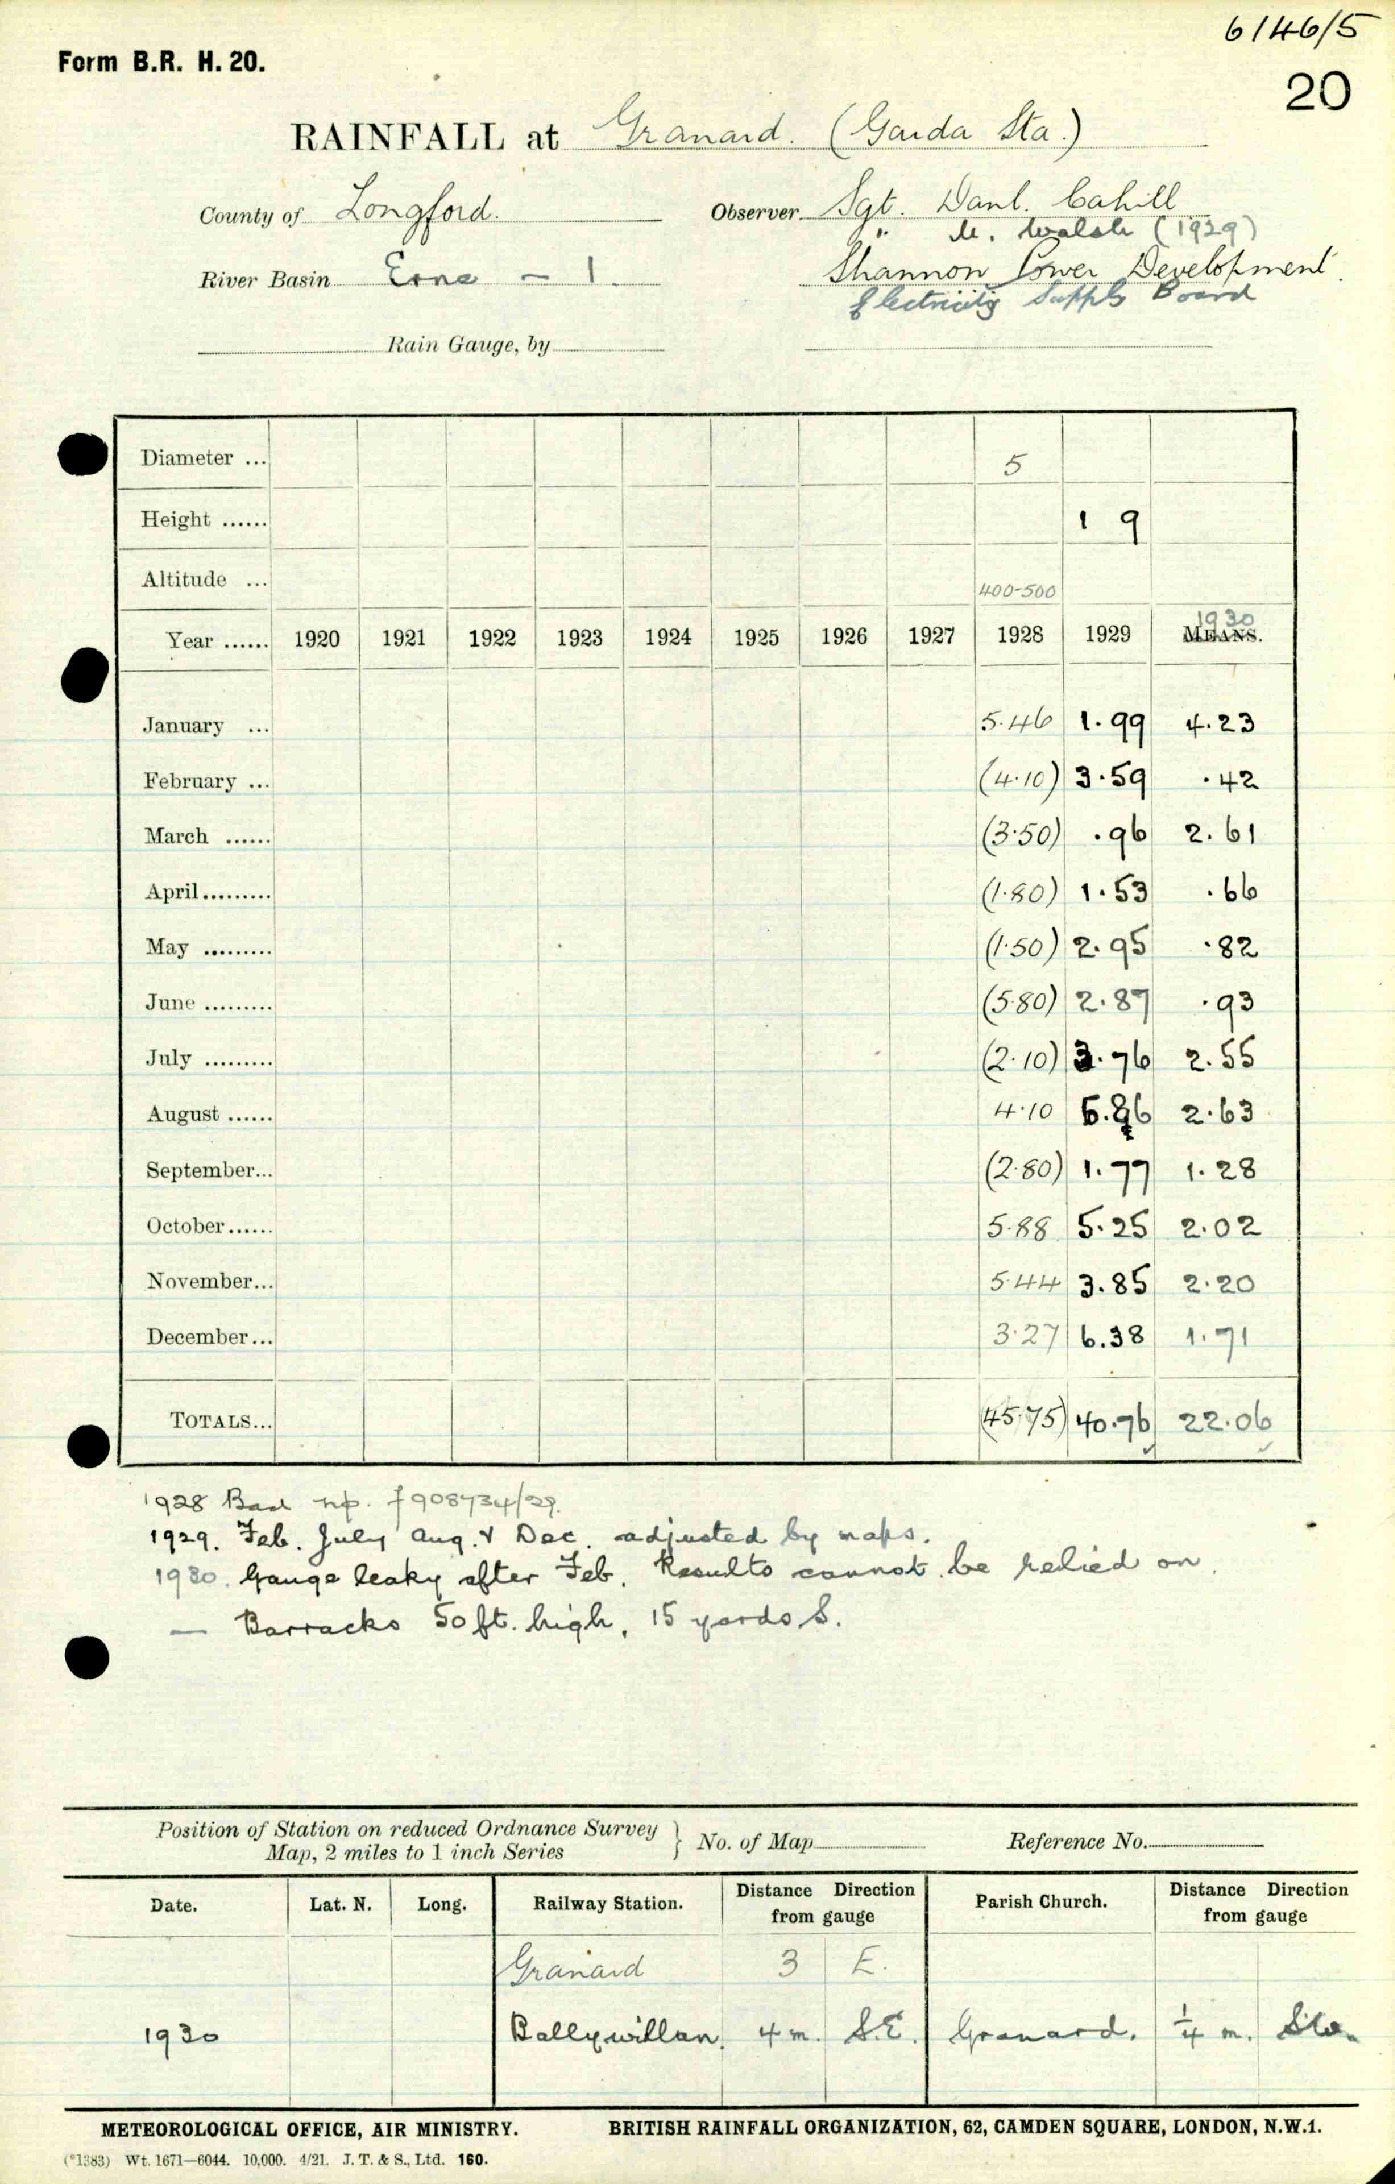 6146/5
Form B.R. H. 20.
20
RAINFALL at Granard. (Garda Sta.)
County of Longford. Observer Sgt. Danl. Cahill
" M. Walsh (1929)
River Basin Erne – 1 Shannon Power Development.
Electricity Supply Board
Rain Gauge, by
Diameter ... 5
Height ...... 1 9
Altitude ... 400-500
Year ...... 1920 1921 1922 1923 1924 1925 1926 1927 1928 1929 MEANS. 1930
January ... 5.46 1.99 4.23
February ... (4.10) 3.59 .42
March ...... (3.50) .96 2.61
April ......... (1.80) 1.53 .66
May ......... (1.50) 2.95 .82
June ......... (5.80) 2.87 .93
July ......... (2.10) 3.76 2.55
August ...... 4.10 5.86 2.63
September... (2.80) 1.77 1.28
October...... 5.88 5.25 2.02
November... 5.44 3.85 2.20
December... 3.27 6.38 1.71
TOTALS... (45.75) 40.76 22.06
1928 Bad np. f 908734/29.
1929. Feb. July Aug. & Dec. adjusted by maps.
1930. Gauge leaky after Feb. Results cannot be relied on.
— Barracks 50 ft. high, 15 yards S.
Position of Station on reduced Ordnance Survey
Map, 2 miles to 1 inch Series } No. of Map Reference No.
Date. Lat. N. Long. Railway Station. Distance Direction from gauge Parish Church. Distance Direction from gauge
Granard 3 E.
1930 Ballywillan. 4 m. S.E. Granard. ¼ m.
METEOROLOGICAL OFFICE, AIR MINISTRY. BRITISH RAINFALL ORGANIZATION, 62, CAMDEN SQUARE, LONDON, N.W.1.
(*1383) Wt. 1671—6044. 10,000. 4/21. J. T. & S., Ltd. 160.